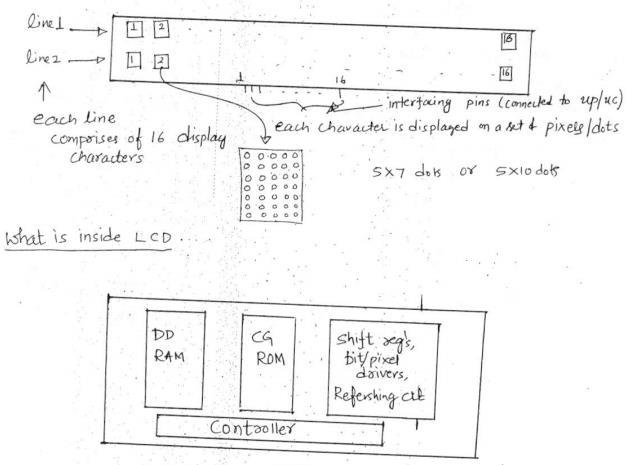 line1
1 2 16
line2
1 2 16
1 16
interfacing pins (connected to up/uc)
each line
comprises of 16 display
characters
each character is displayed on a set of pixels/dots
5X7 dots or 5X10 dots
What is inside LCD ...
DD
RAM
CG
ROM
Shift reg's,
bit/pixel
drivers,
Refershing ckt
Controller